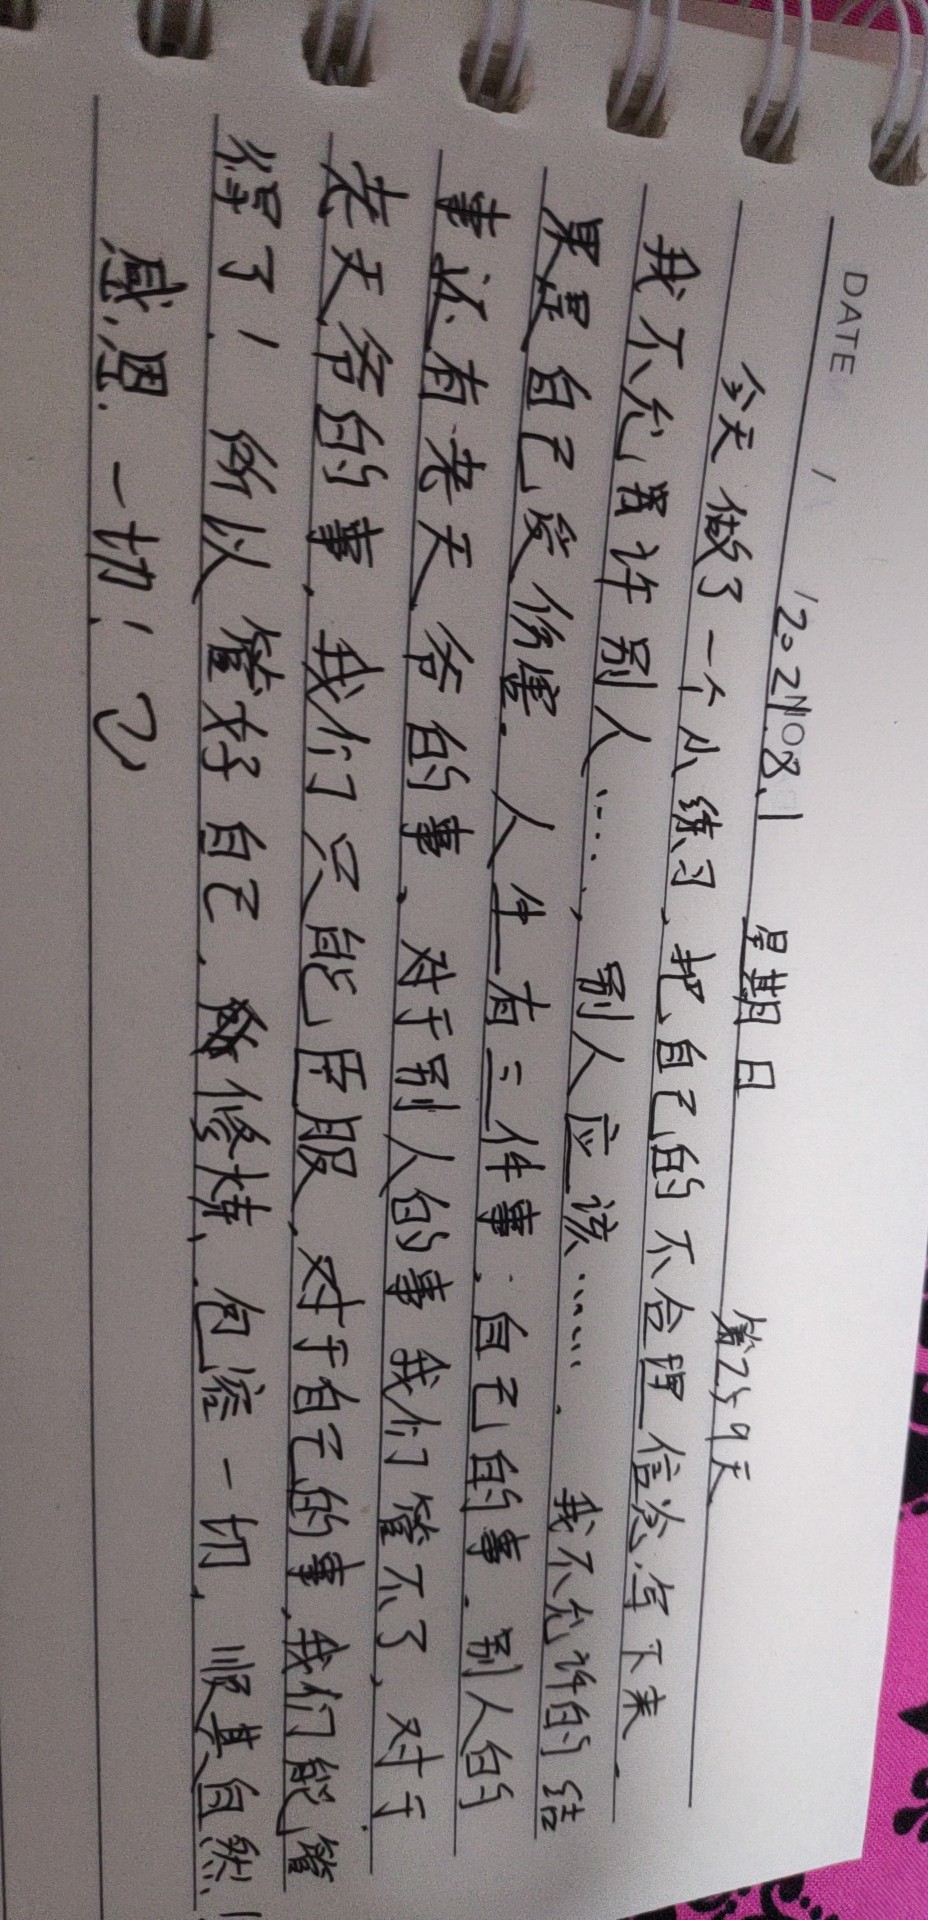 DATE / /
NO.
2021.8.1 星期日 第259天
今天做了一个小练习，把自己的不合理信念写下来.
我不允许别人……，别人应该……. 我不允许的结
果是自己受伤害. 人生有三件事：自己的事. 别人的
事还有老天爷的事. 对于别人的事我们管不了，对于
老天爷的事，我们只能臣服，对于自己的事，我们能管
得了！所以管好自己，修炼，包容一切，顺其自然！
感恩一切！